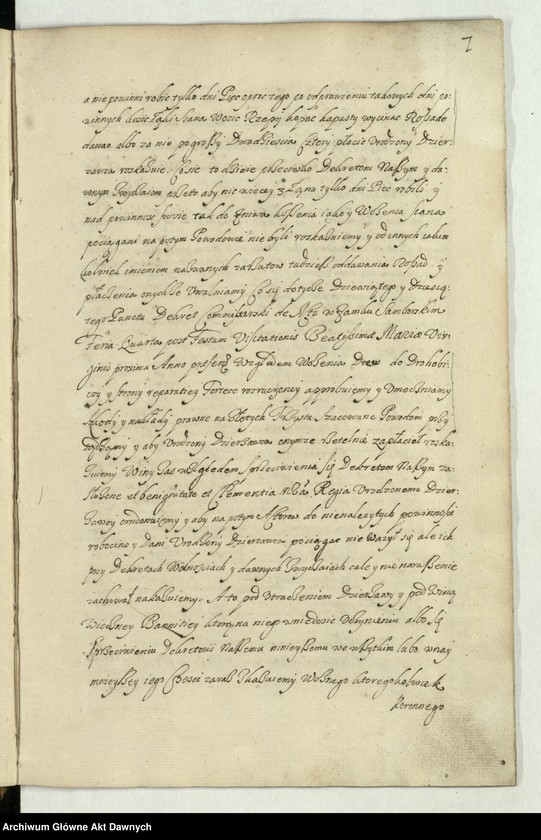 7
a nie powinni robić tylko dni Pięć oprócz tego po odprawieniu takowych dni po-
winnych kosić Łąki Siana Wozić Rzepy kopac kapusty wycinac Rossadę
dawac albo za nie po groszy Dwadziescia Cztery płacić Urodzony Dzier-
zawca roskazuie. Co sie to dzieie przeciwko Dekretom Naszym y da-
wnym Zwyczaiom przeto aby nie więcey z Łanu tylko dni Pięć robili y
nad powinnosc swoię tak do Zniwa koszenia iako y Wozenia siana
pociągani na potym Powodowie nie byli roskazuiemy y od innych iakim
kolwiek imieniem nazwanych zaciągow tudziesz oddawania Rossad y
płacenia onychże Uwalniamy. Co się dotycze Dziewiątego y Dziesią-
tego Punctu Dekret Commissarski de Actu w Zamku Samborskim
Feria Quarta post Festum Visitationis Beatissimæ Mariæ Vir-
ginis proxima Anno præsenti Względem Wozenia Drew do Drohobi-
czy y strony reparatiey Fortece rozruconey approbuiemy y Umocniamy
Szkody y nakłady prawne na Złotych Trzysta szacowane Powodom przy
sądzamy y aby Urodzony Dzierżawca onymze rzetelnie zapłacił roska-
zuiemy Winy zas względem sprzeciwienia się Dekretom Naszym za-
służone et benignitate et Clementia Nra Regia Urodzonemu Dzier-
zawcy condonuiemy y aby na potym Actorow do nienalezytych powinnosci
robocizn y Dani Urodzony Dzierzawca pociągac nie wazył się ale ich
przy Dekretach Wolnosciach y dawnych Zwyczaiach cale y nienaruszenie
zachował nakazuiemy. A to pod Utraceniem Dzierżawy y pod Winą
Wieczney Bannitiey ktorą na niego w niedosić Uczynieniu albo się
sprzeciwieniu Dekretowi Naszemu ninieyszemu we wszytkim lubo w naj
mnieyszey iego Częsci zaraz skazuiemy Woznego ktoregokolwiek
koronnego
Archiwum Główne Akt Dawnych